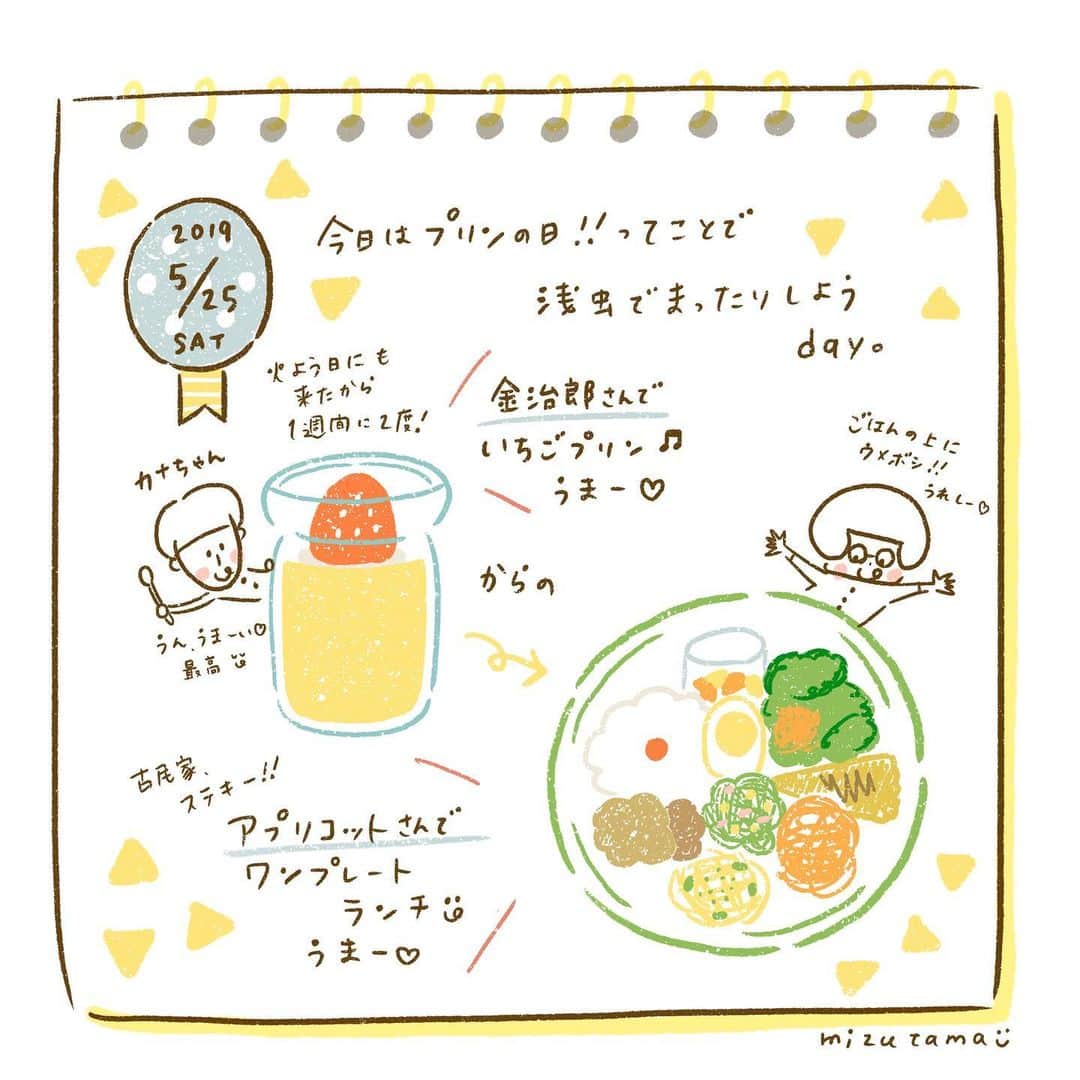 2019
5/25
SAT
今日はプリンの日!!ってことで
浅虫でまったりしよう
day。
火よう日にも
来たから
1週間に2度!
金治郎さんで
いちごプリン♫
うまー♡
カナちゃん
うん、うまーい♡
最高
からの
ごはんの上に
ウメボシ!!
うれしー♡
古民家、
ステキー!!
アプリコットさんで
ワンプレート
ランチ
うまー♡
mizutama